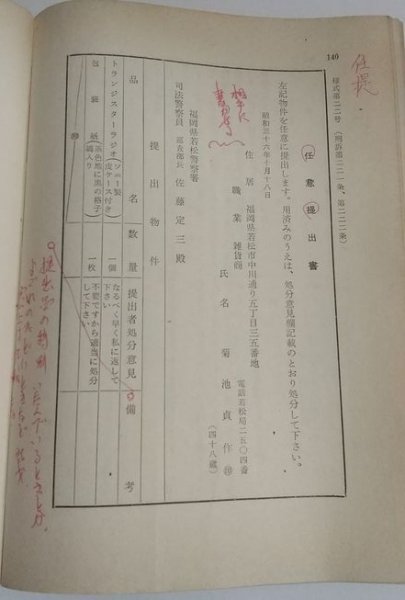 140
任提
様式第二二号(刑訴第二二一条、第二二二条)
任意提出書
左記物件を任意に提出します。用済みのうえは、処分意見欄記載のとおり処分して下さい。
昭和三十六年十月十八日
住居 福岡県若松市中川通り五丁目三五番地
電話若松局二五〇四番
職業 雑貨商
氏名 菊池貞作㊞
(四十八歳)
福岡県若松警察署
司法警察員 佐藤定三殿
提出物件
品名 数量 提出者処分意見 備考
トランジスターラジオ(ソニー製皮ケース付き) 一個 なるべく早く私に返して下さい
包装紙(茶色地に黒の格子縞入り) 一枚 不要ですから適当に処分して下さい